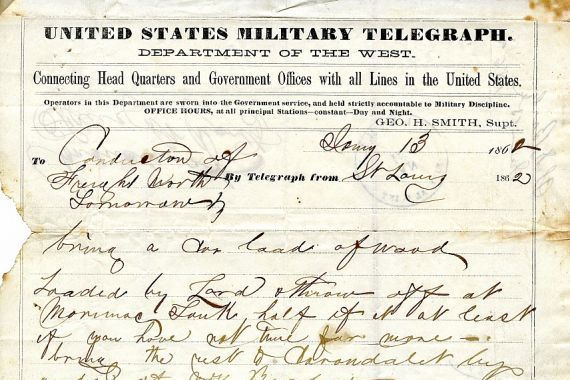 UNITED STATES MILITARY TELEGRAPH.
DEPARTMENT OF THE WEST.
Connecting Head Quarters and Government Offices with all Lines in the United States.
Operators in this Department are sworn into the Government service, and held strictly accountable to Military Discipline.
OFFICE HOURS, at all principal Stations—constant—Day and Night.
GEO. H. SMITH, Supt.
Jany 13 1862
To Conductor of
Freight North By Telegraph from St Louis 1862
Tomorrow
bring a Car load of wood
Loaded by Lord & throw off at
Merimac South half if it at least
if you have not time for more —
bring the rest to Carondalet by